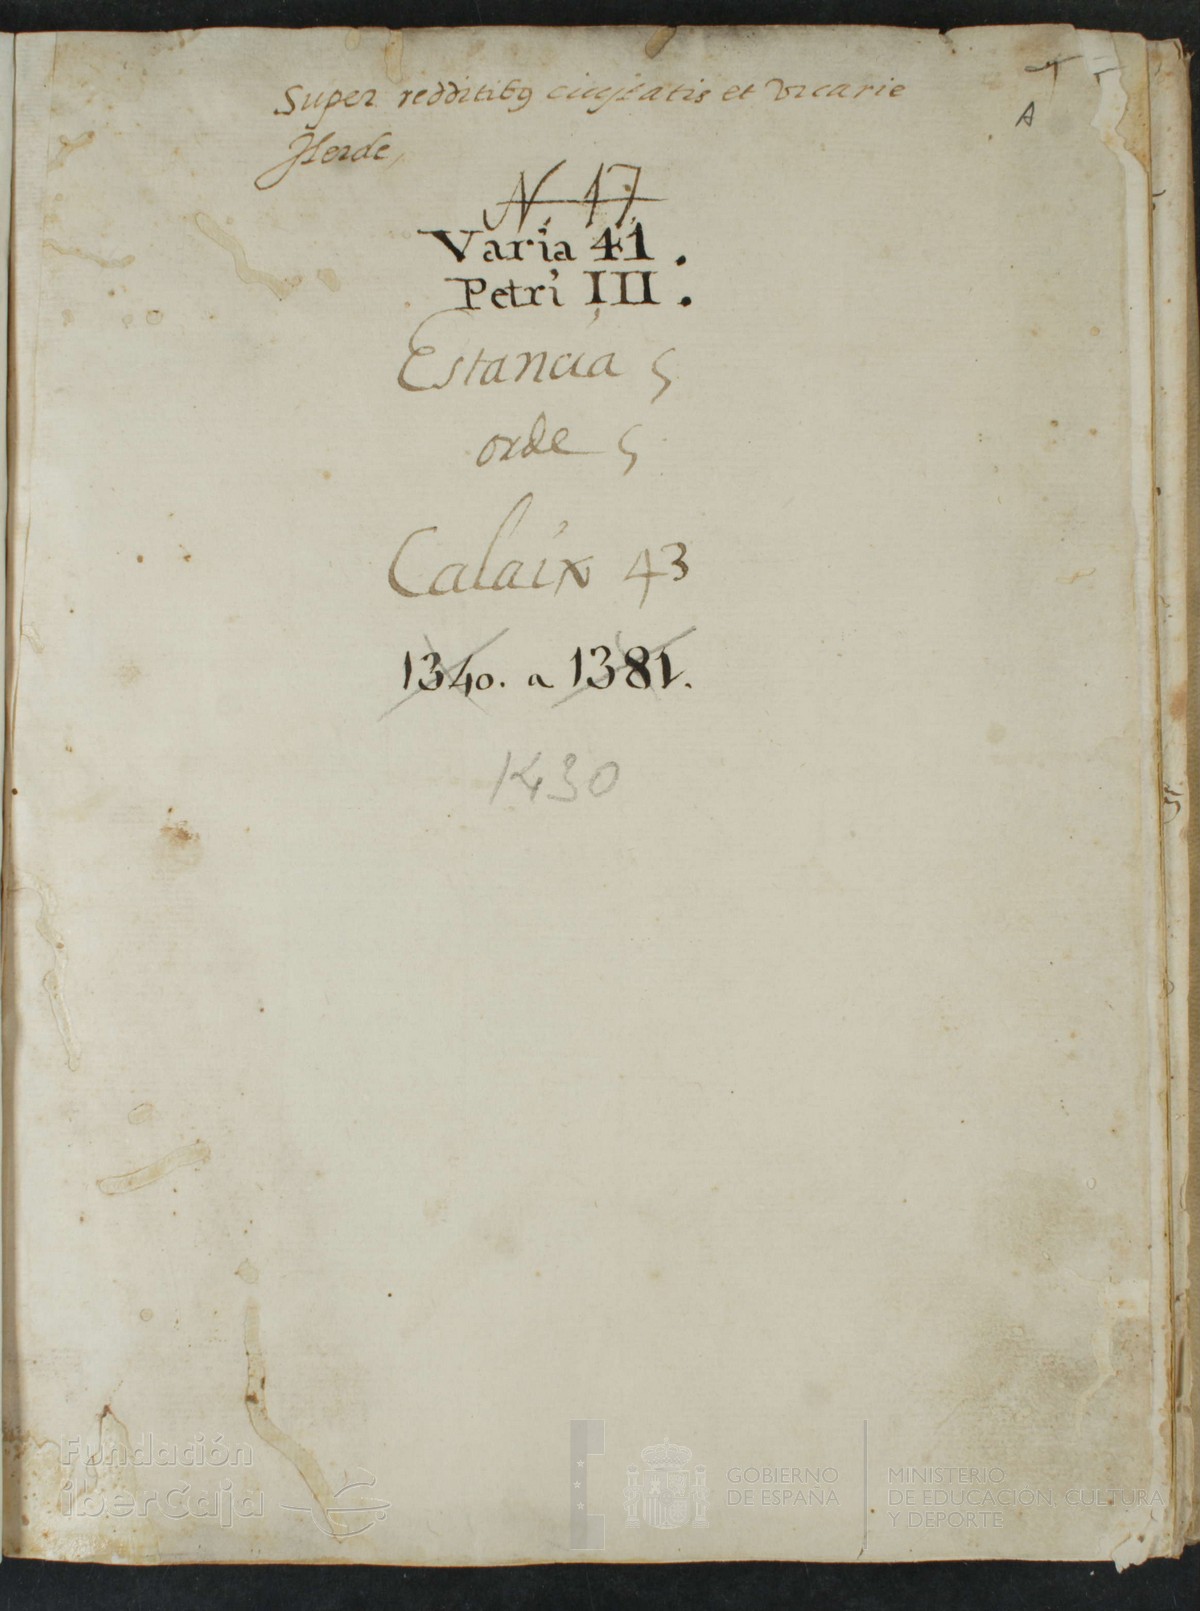 Super redditibꝯ ciujtatis et vicarie
Jlerde,
A
N 17
Varia 41.
Petri III.
Estancia ς
orde ς
Calaix 43
1340. a 1381.
1430
Fundación
iberCaja
GOBIERNO
DE ESPAÑA
MINISTERIO
DE EDUCACIÓN, CULTURA
Y DEPORTE